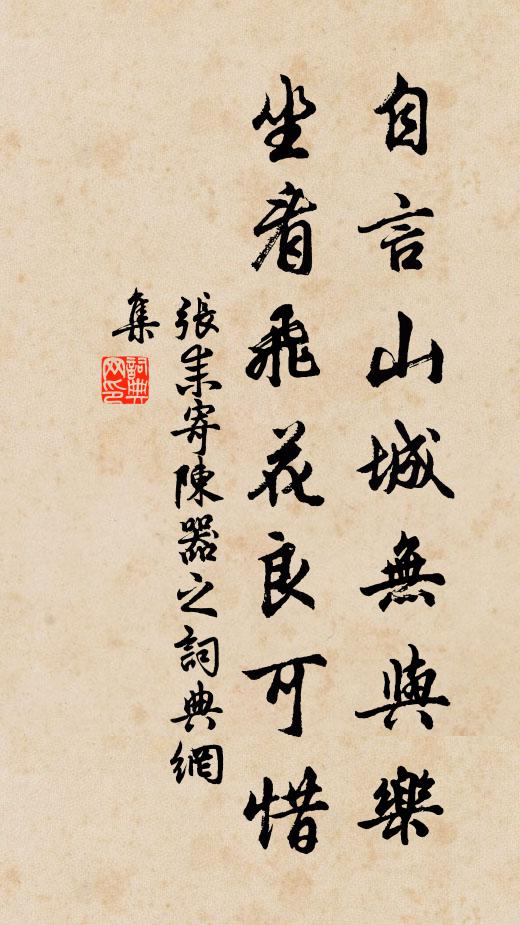 自言山城無與樂
坐看飛花良可惜
張耒寄陳器之詞典網
集
詞典網印